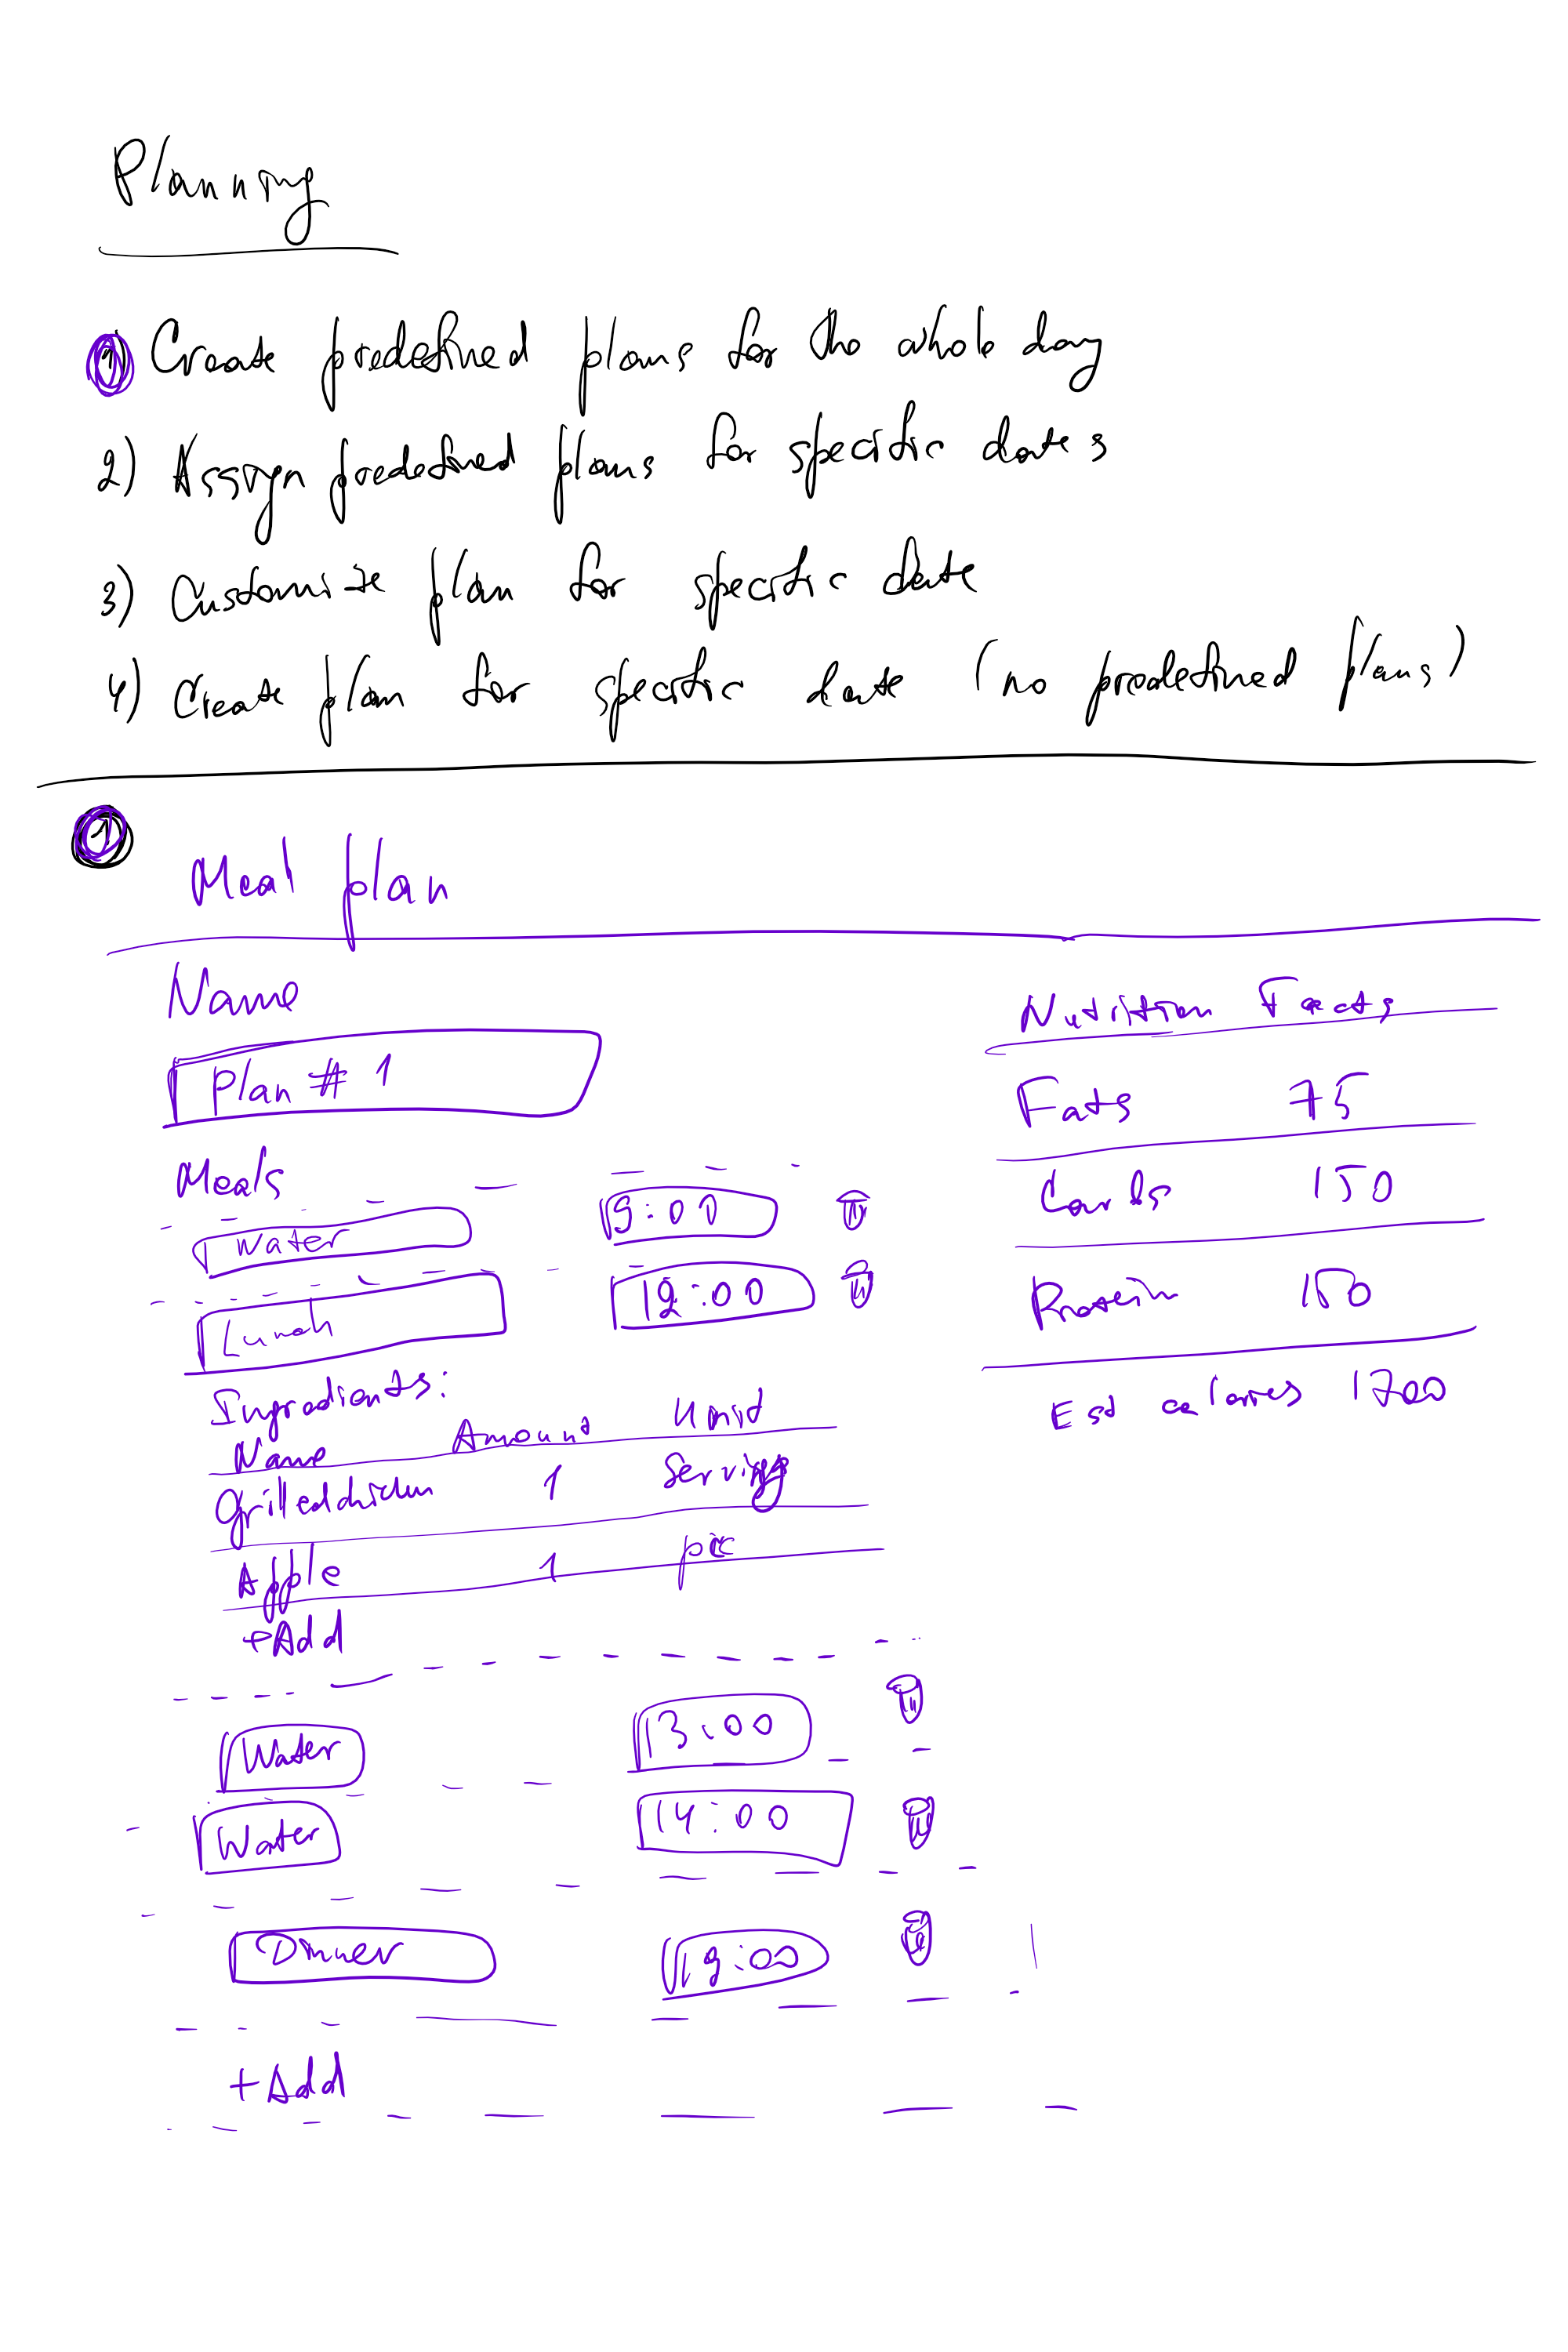 Planning
1) Create predefined plans for the whole day
2) Assign predefined plans for specific dates
3) Customize plan for specific date
4) Create plan for specific date (no predefined plans)
1
Meal plan
Name
Plan # 1
Meals
Water 9:00
Lunch 12:00
Ingredients:
Name Amount Unit
Grilled chicken 1 Serving
Apple 1 pic
+Add
Water 13:00
Water 14:00
Dinner 19:00
+Add
Nutrition Facts
Fats 75
Carbs 150
Protein 150
Est calories 1700